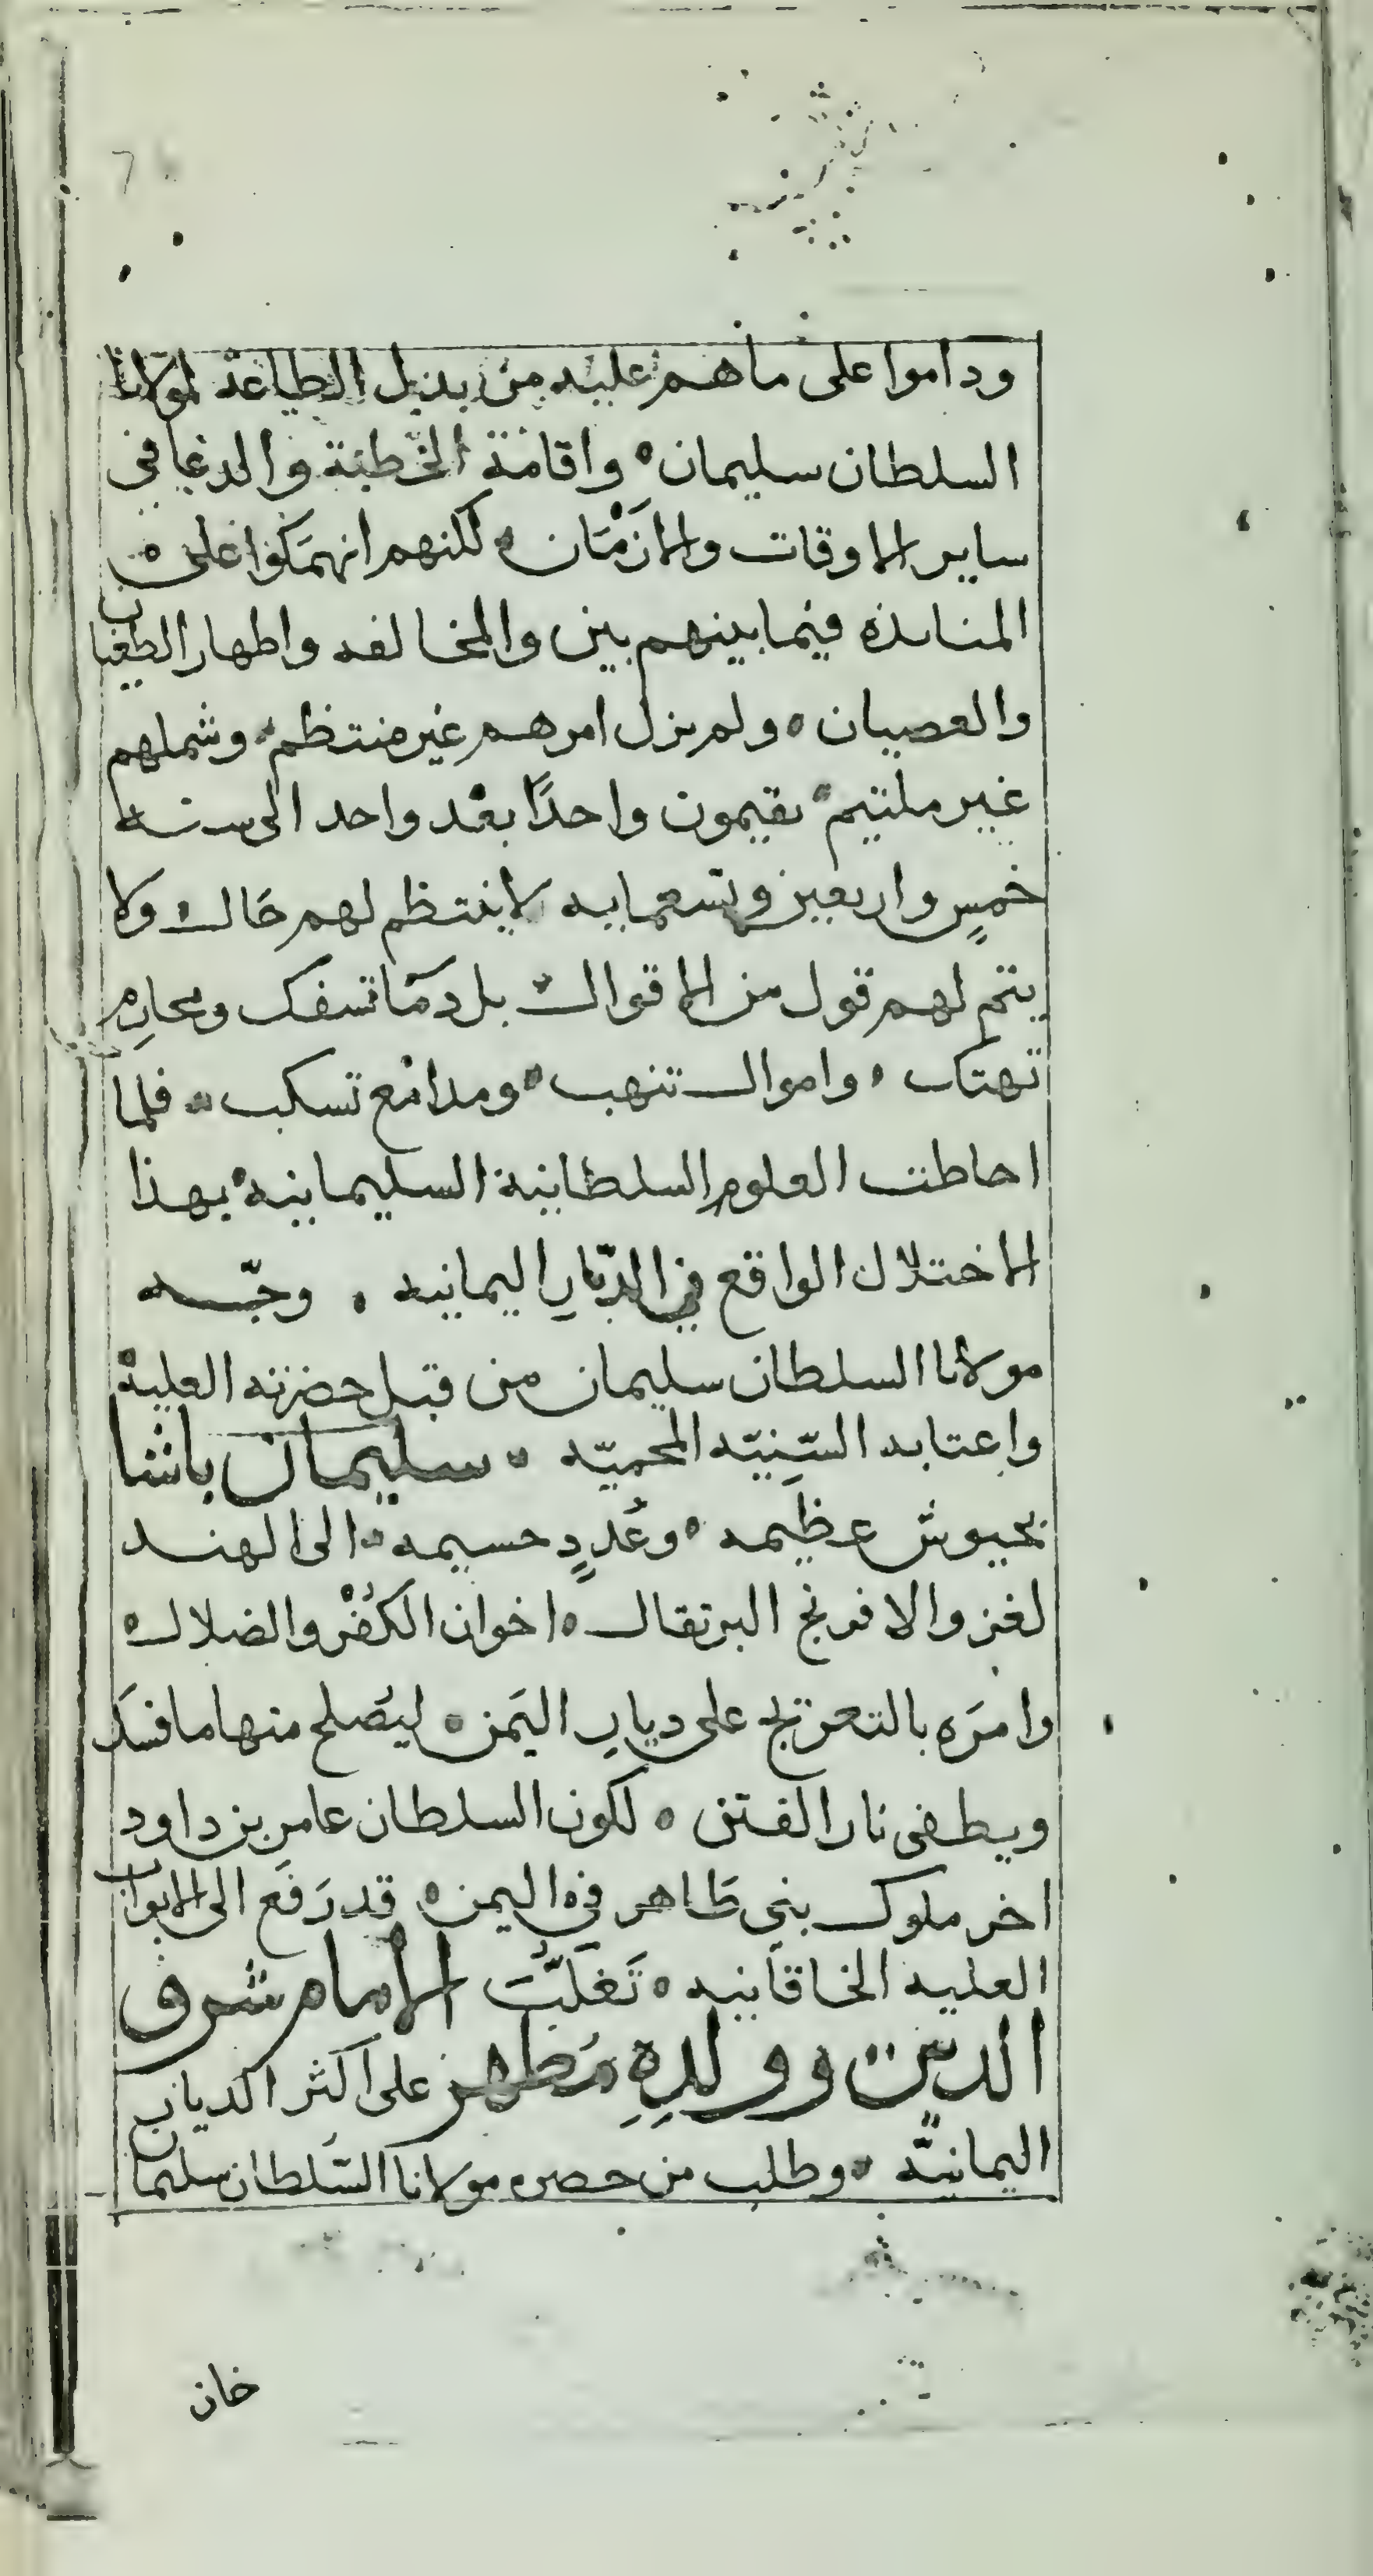 7
وداموا على ماهم عليه من بذل الطاعة لمولانا
السلطان سليمان ه واقامة الخطبة والدعا في
ساير الاوقات والازمان ه لكنهم انهمكوا على ه
المنابذه فيما بينهم بين والمخالفه واظهار الطغيان
والعصيان ه ولم يزل امرهم غير منتظم ه وشملهم
غير ملتيم ه يقيمون واحدًا بعد واحد الى سنة
خمسٍ واربعين وتسعمايه لا ينتظم لهم حال ه ولا
يتم لهم قول من الاقوال ه بل دمًا تسفك ومحارِم
تهتك ه واموال تنهب ه ومدامع تسكب ه فلما
احاطت العلوم السلطانية السليمانيه ه بهذا
الاختلال الواقع في الدّيارِ اليمانيه ه وجّه
مولانا السلطان سليمان من قبل حضرته العلية
واعتابه السّنِيّه المحميّه ه سليمان باشا
بجيوش عظيمه ه وعُددٍ جسيمه ه الى الهند
لغزو الافرنج البرتقال ه اخوان الكُفْر والضلال ه
وامرَه بالتعريج على ديارِ اليَمن ه ليُصلح منها ما فسَد
ويطفى نار الفتن ه لكون السلطان عامر بن داود
اخر ملوك بني طَاهر في اليمن ه قد رَفَع الى الابواب
العليه الخاقانيه ه تَغَلّبَ الامام شرف
الدين وولدِهِ مُطهر على اكثر الديار
اليمانيّه ه وطلب من حضره مولانا السّلطان سليمان
خان